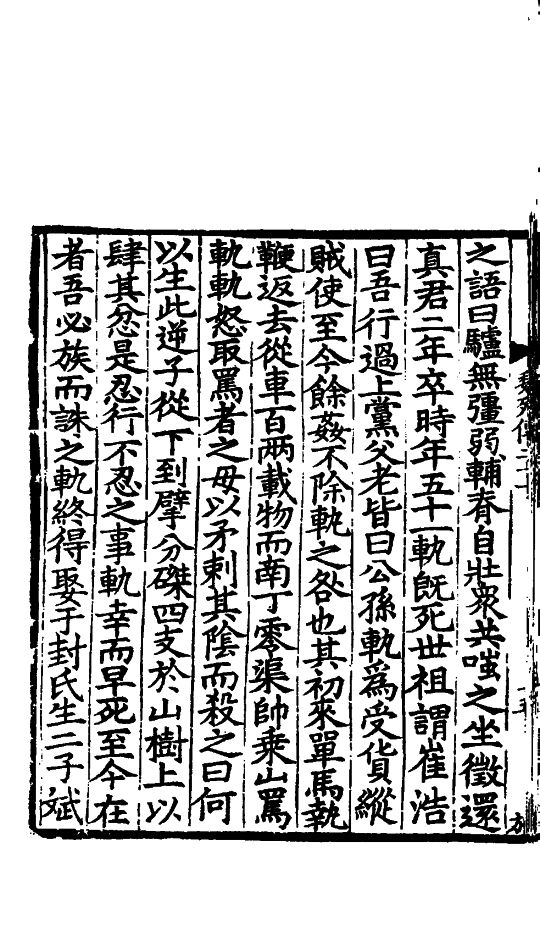 之語曰驢無彊弱輔脊自壯衆共嗤之坐徵還
真君二年卒時年五十一軌旣死世祖謂崔浩
曰吾行過上黨父老皆曰公孫軌爲受貨縱
賊使至今餘姦不除軌之咎也其初來單馬執
鞭返去從車百兩載物而南丁零渠帥乗山罵
軌軌怒取罵者之母以矛刺其陰而殺之曰何
以生此逆子從下到擘分磔四支於山樹上以
肆其忿是忍行不忍之事軌幸而早死至今在
者吾必族而誅之軌終得娶于封氏生二子斌